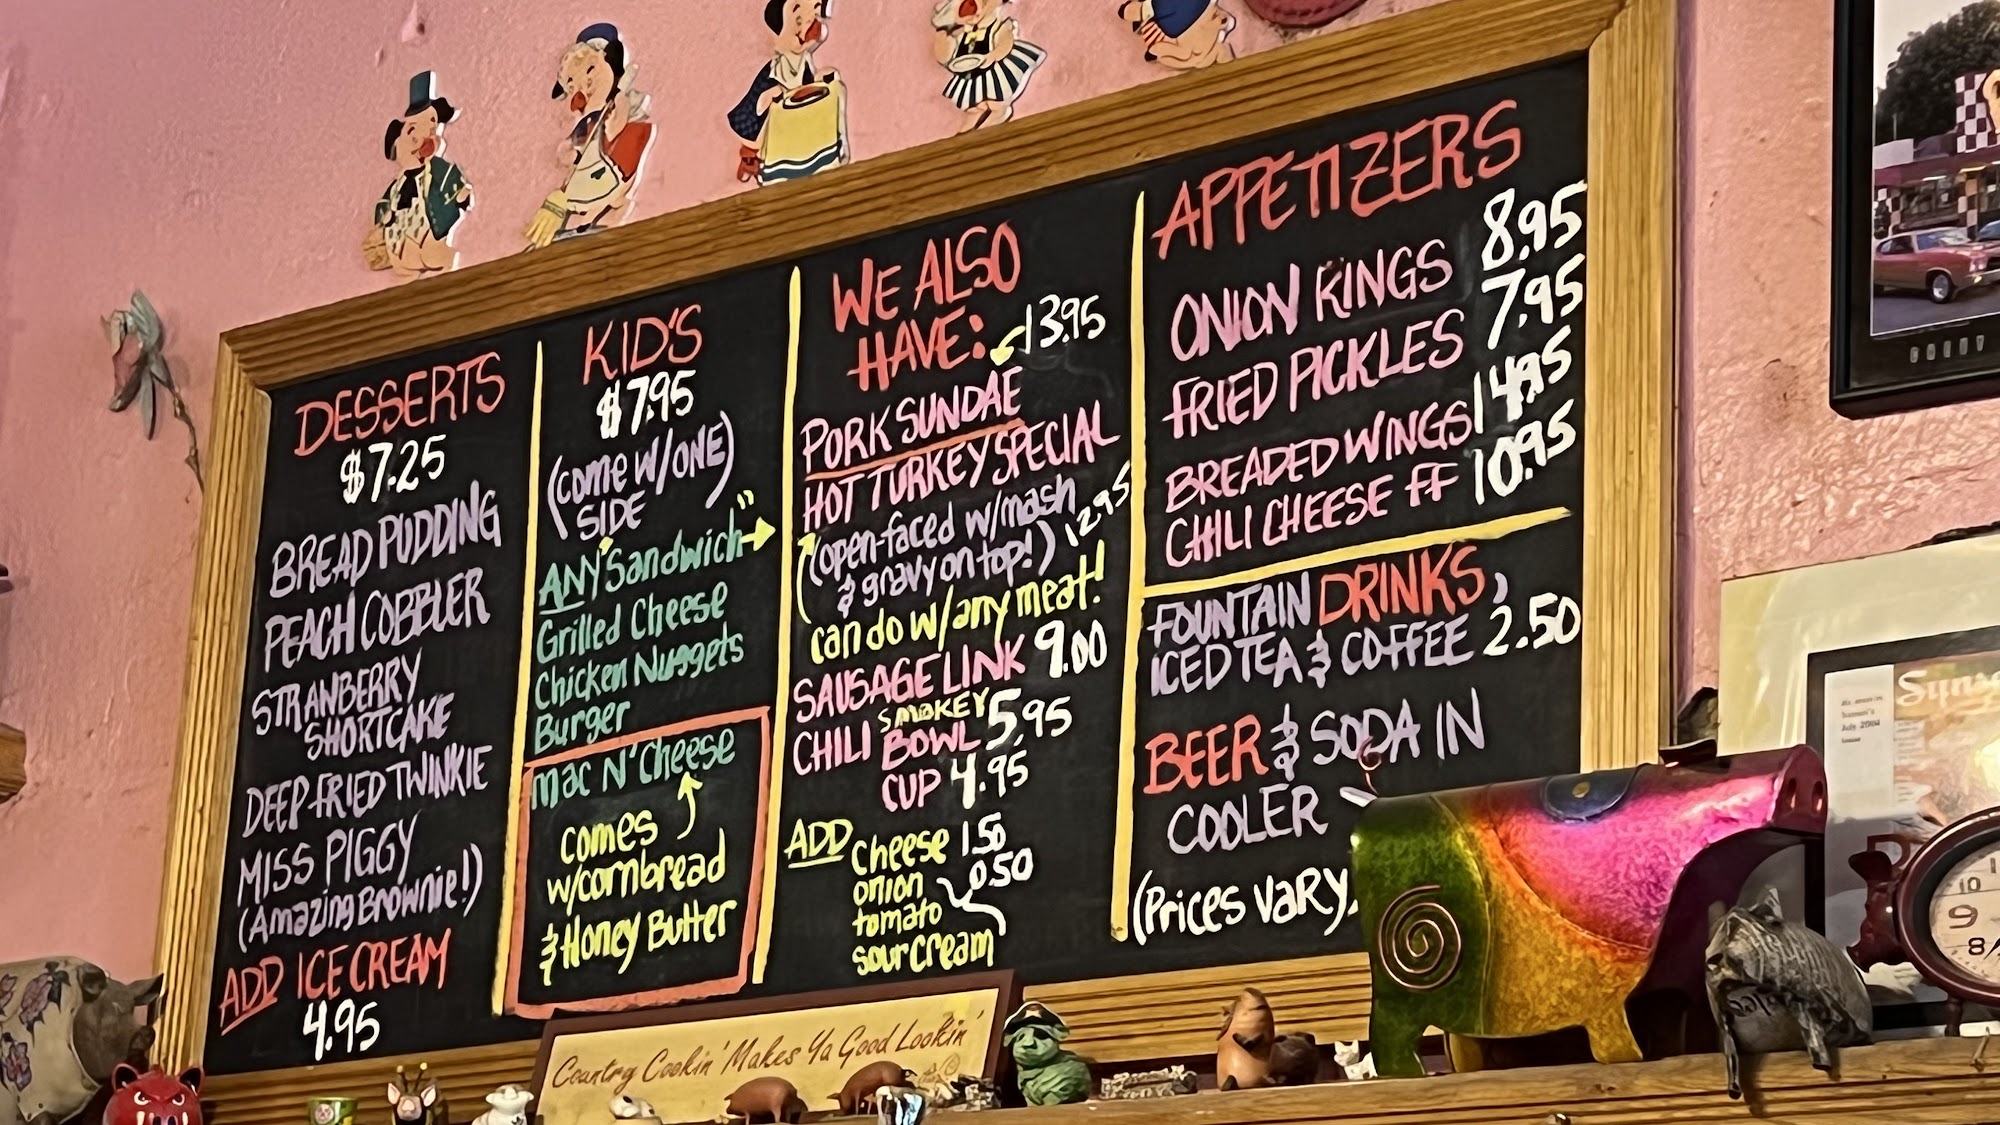 DESSERTS
$7.25
BREAD PUDDING
PEACH COBBLER
STRANBERRY
SHORTCAKE
DEEP FRIED TWINKIE
MISS PIGGY
(Amazing Brownie!)
ADD ICE CREAM
4.95
KID'S
$7.95
(come w/ONE)
SIDE
ANY Sandwich"
Grilled Cheese
Chicken Nuggets
Burger
Mac N' Cheese
comes
w/cornbread
& Honey Butter
WE ALSO
HAVE: 13.95
PORK SUNDAE
HOT TURKEY SPECIAL
(open-faced w/mash 12.95
& gravy on top!)
can do w/any meat!
SAUSAGE LINK 9.00
SMOKEY
CHILI BOWL 5.95
CUP 4.95
ADD Cheese 1.50
onion 0.50
tomato
sour cream
APPETIZERS
ONION RINGS 8.95
FRIED PICKLES 7.95
BREADED WINGS 14.95
CHILI CHEESE FF 10.95
FOUNTAIN DRINKS,
ICED TEA & COFFEE 2.50
BEER & SODA IN
COOLER
(Prices vary
Country Cookin' Makes Ya Good Lookin'
10
9
8